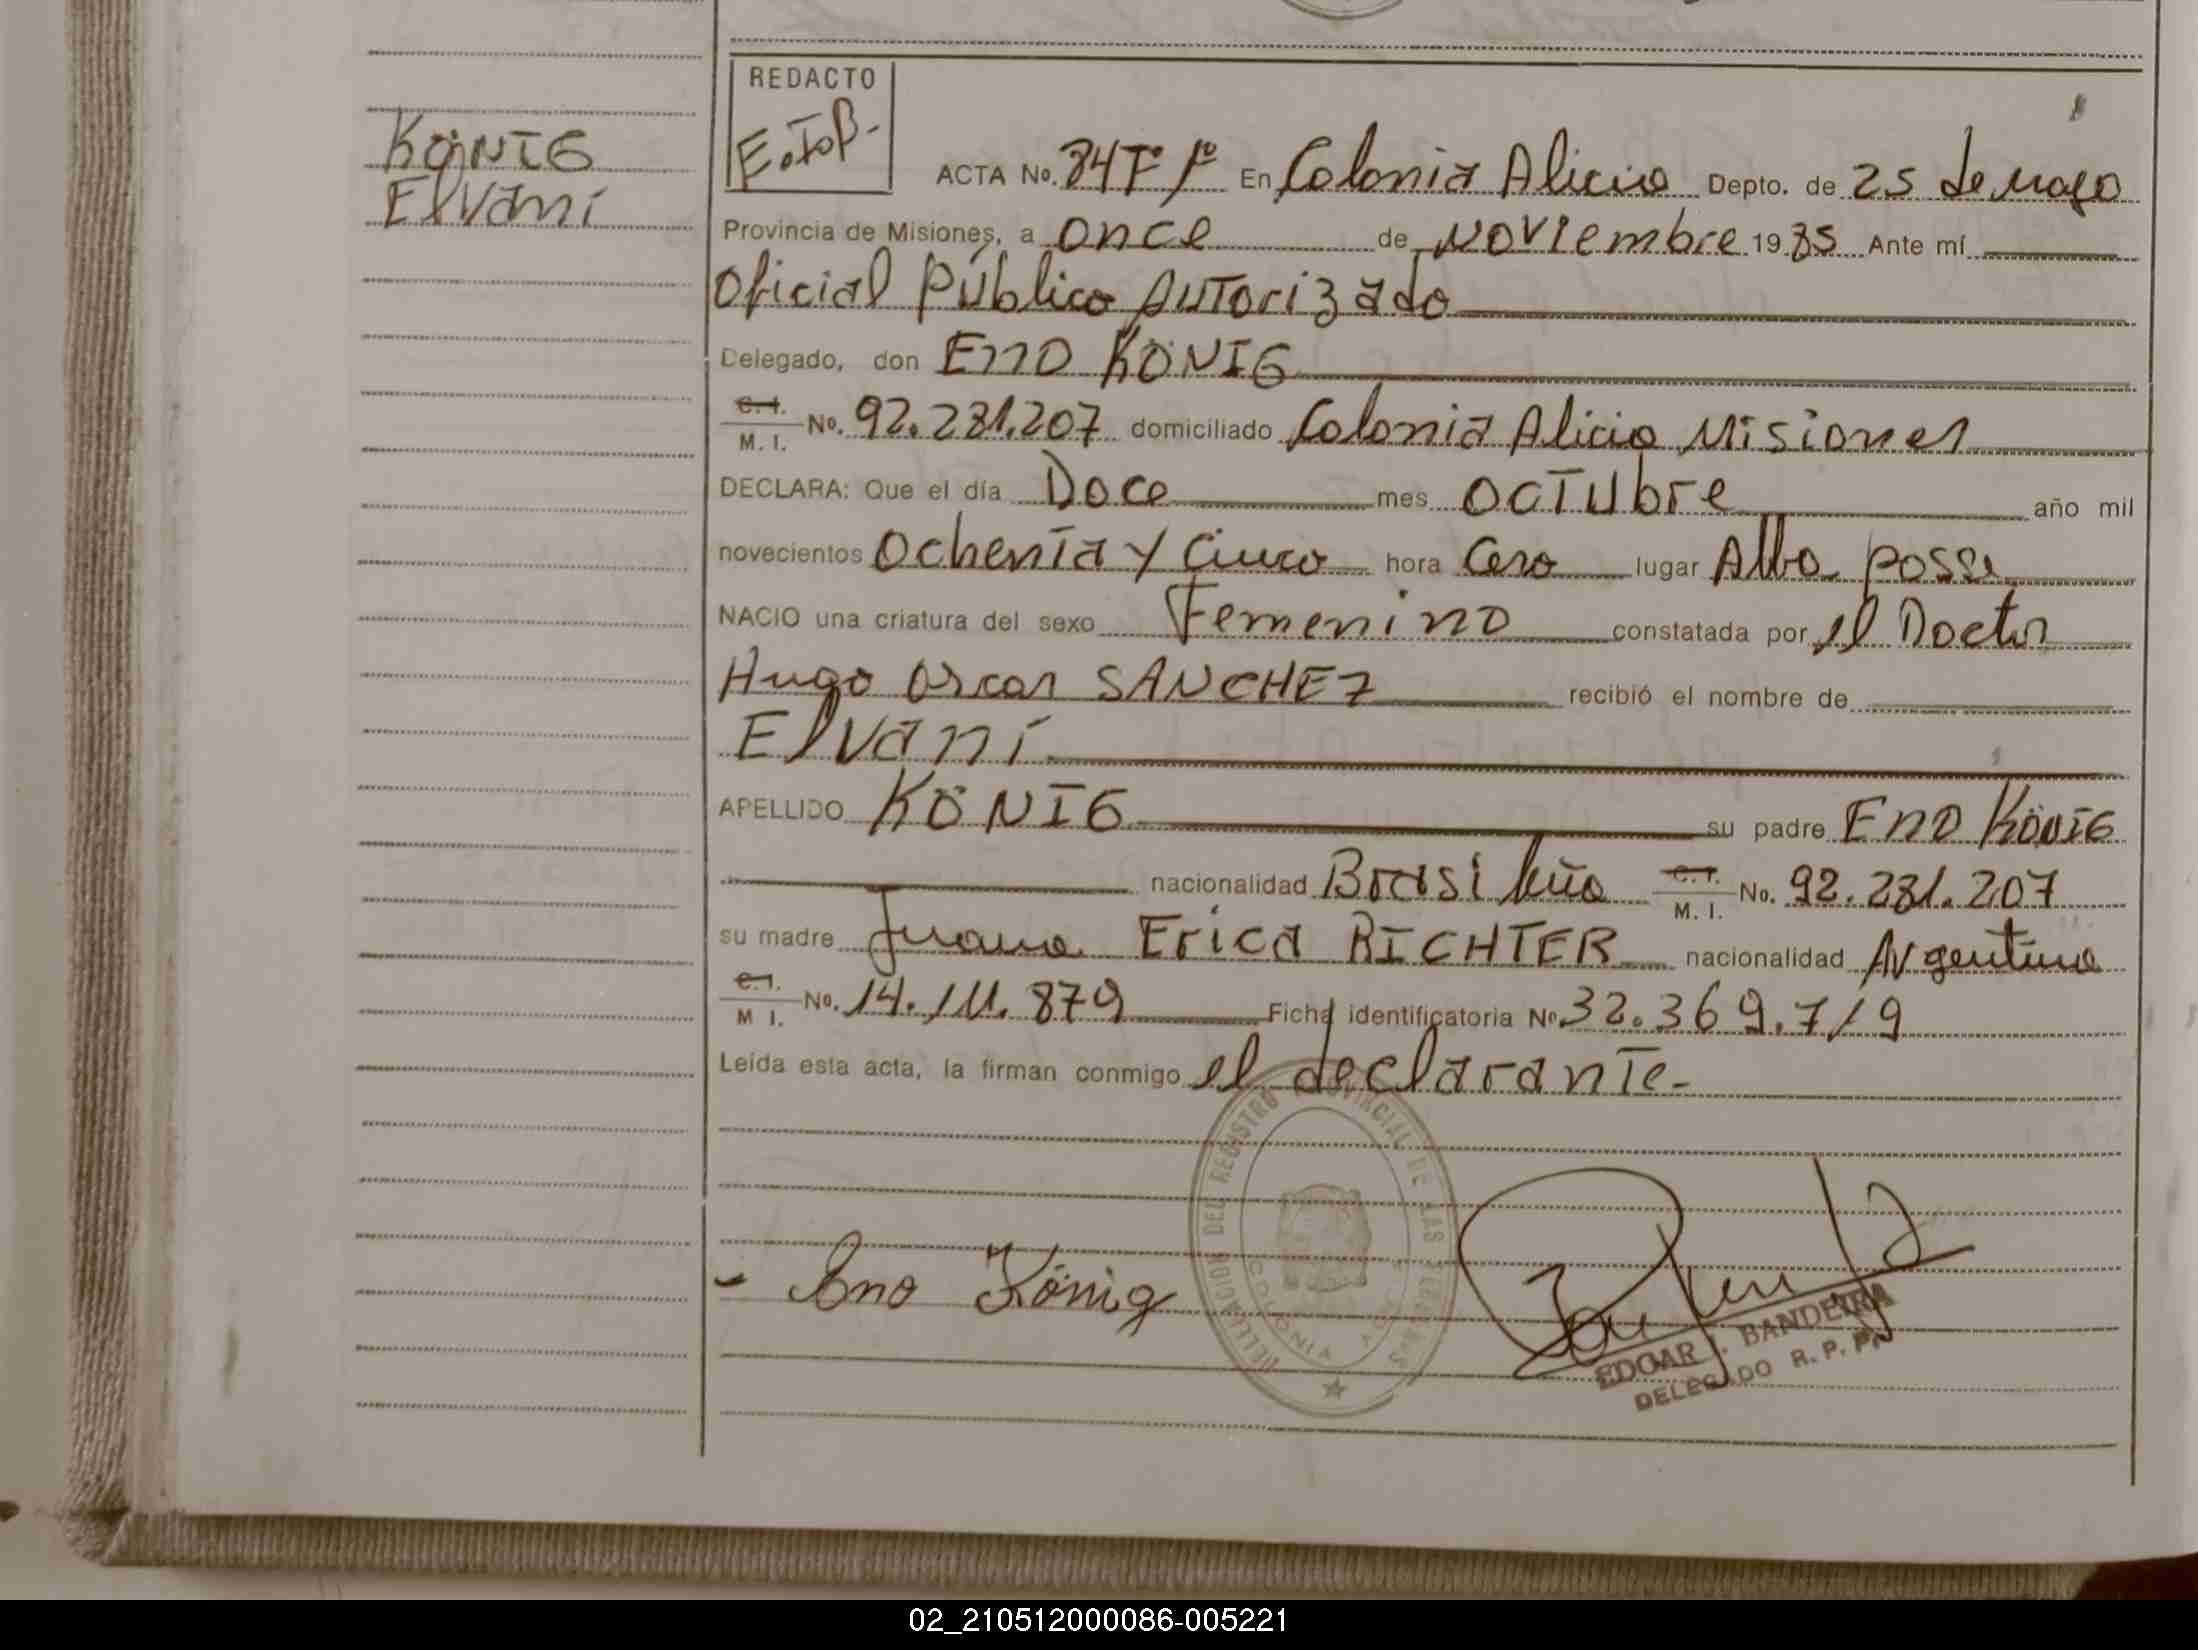 REDACTO
KÖNIG
Elvani
ACTA No. 84 Tº Iº En Colonia Alicia Depto. de 25 de mayo
Provincia de Misiones, a once de Noviembre 19 85 Ante mí
Oficial Público Autorizado
Delegado, don Eno KÖNIG
C. I. M. I. No. 92.281.207 domiciliado Colonia Alicia Misiones
DECLARA: Que el día Doce mes OCTUbre año mil
novecientos Ochenta y Cinco hora Cero lugar Alba posse
NACIO una criatura del sexo Femenino constatada por el Doctor
Hugo Oscar SANCHEZ recibió el nombre de
Elvani
APELLIDO KÖNIG su padre Eno KÖNIG
nacionalidad Brasileño C. I. M. I. No. 92.281.207
su madre Juana Erica RICHTER nacionalidad Argentina
C. I. M I. No. 14.111.879 Ficha identificatoria No. 32.369.719
Leída esta acta, la firman conmigo el declarante.-
DEL REGISTRO PROVINCIAL DE LAS
COLONIA
- Eno König
EDGAR BANDEIRA
DELEGADO R. P. P.
02_210512000086-005221